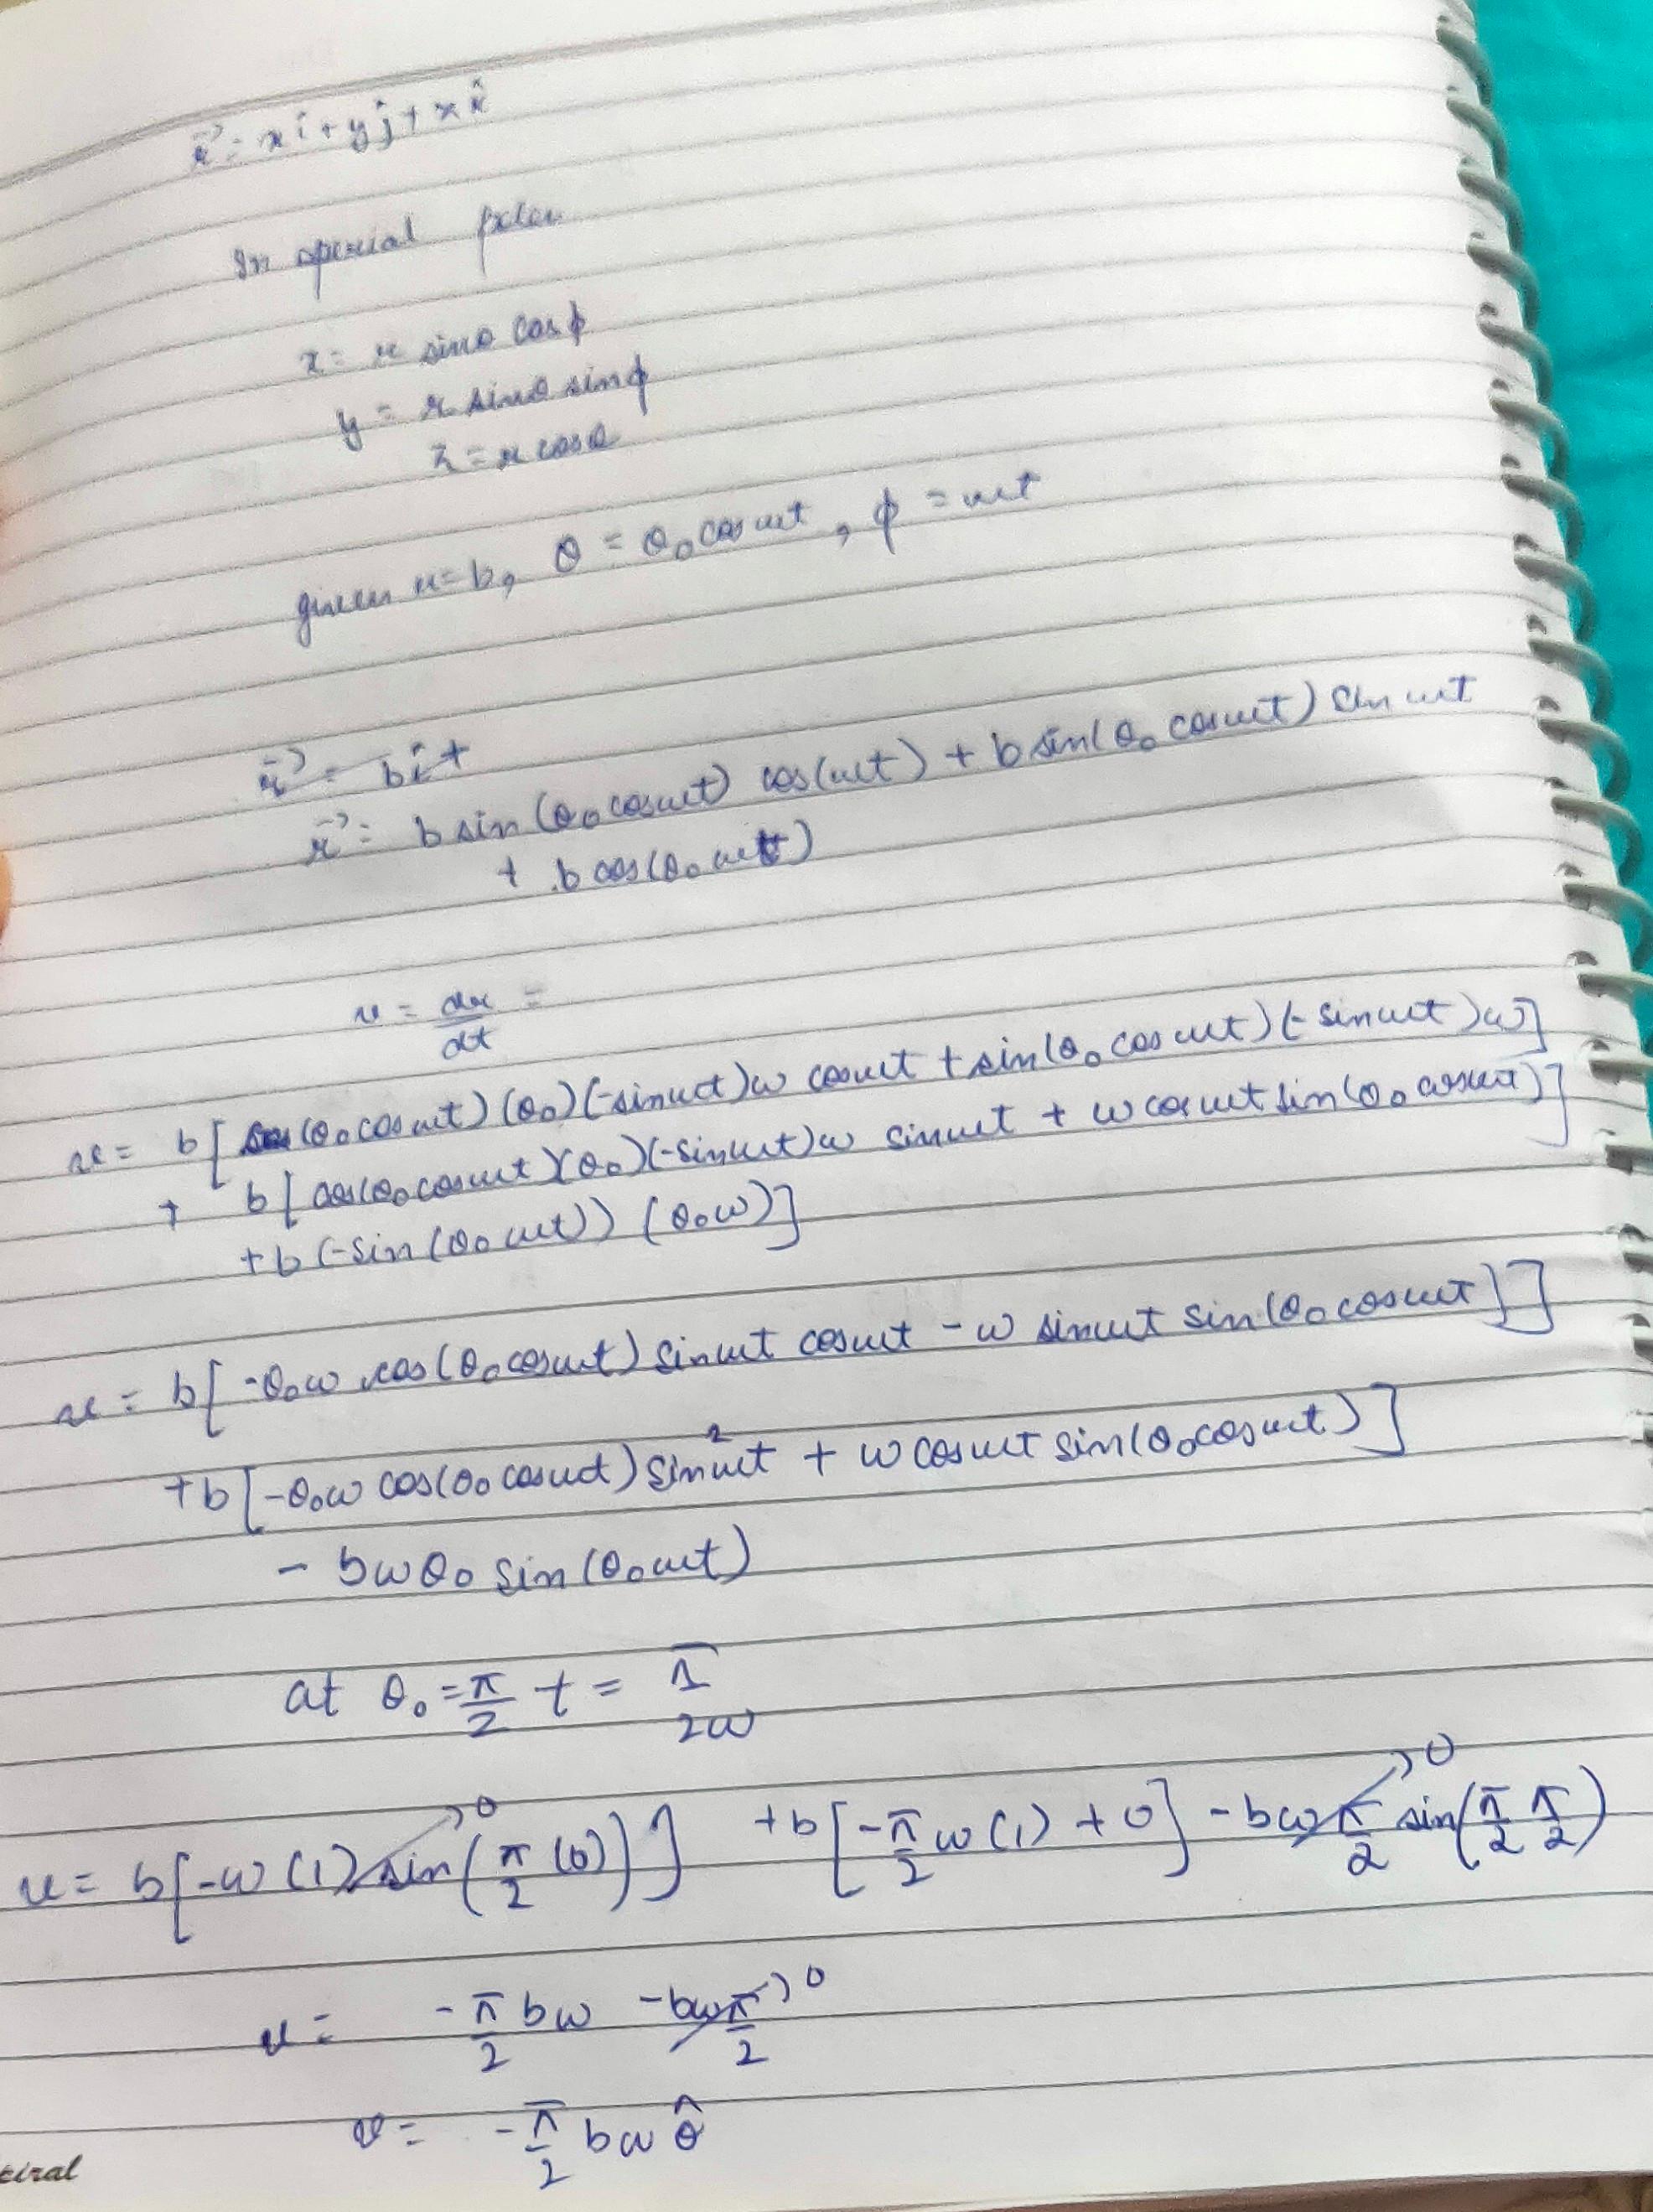 r⃗ = x î + y ĵ + x k̂
In sperial polar
x = r sinθ cosϕ
y = r sinθ sinϕ
z = r cosθ
given r = b, θ = θ₀ cos ωt, ϕ = ωt
r⃗ = b î +
r⃗ = b sin(θ₀ cosωt) cos(ωt) + b sin(θ₀ cosωt) sin ωt
+ b cos(θ₀ ωt)
v = dr/dt =
v = b[ cos(θ₀ cos ωt)(θ₀)(-sinωt)ω cosωt + sin(θ₀ cos ωt)(-sinωt)ω]
+ b[cos(θ₀ cosωt)(θ₀)(-sinωt)ω sinωt + ω cosωt sin(θ₀ cosωt)]
+ b(-sin(θ₀ ωt)) (θ₀ω)]
v = b[-θ₀ω cos(θ₀ cosωt) sinωt cosωt - ω sinωt sin(θ₀ cosωt)]]
+ b[-θ₀ω cos(θ₀ cosωt) sin²ωt + ω cosωt sin(θ₀ cosωt)]
- bωθ₀ sin(θ₀ωt)
at θ₀ = π/2 t = π/2ω
v = b[-ω(1) sin(π/2 (0))]→0 + b[-π/2 ω(1) + 0] - bω π/2 sin(π/2 π/2)→0
v = -π/2 bω - bωπ/2→0
v = -π/2 bω θ̂